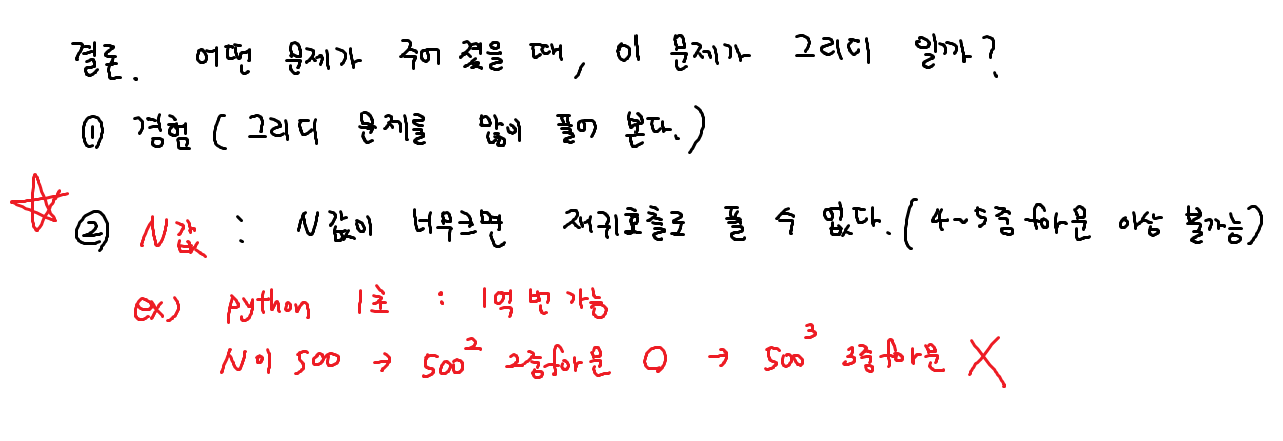 결론. 어떤 문제가 주어 졌을 때, 이 문제가 그리디 일까?
① 경험 ( 그리디 문제를 많이 풀어 본다.)
② N값 : N값이 너무크면 재귀호출로 풀 수 없다. ( 4~5중 for문 이상 불가능)
ex) python 1초 : 1억 번 가능
N이 500 → 500² 2중for문 O → 500³ 3중for문 X